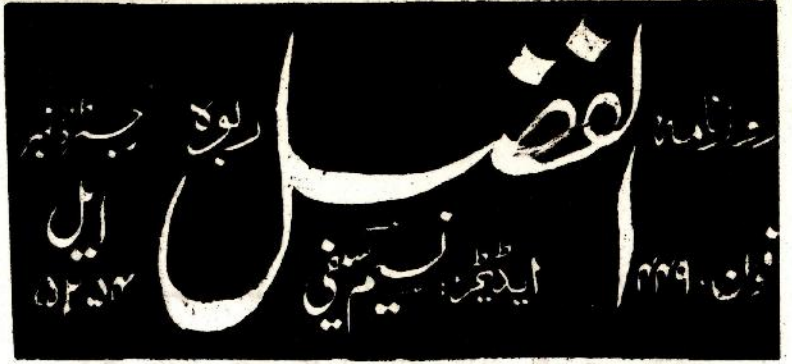 روزنامہ الفضل ربوہ رجسٹرڈ نمبر
ایل
فون۔ ۴۴۹ ایڈیٹر: نسیم سیفی ۵۲۵۴